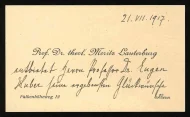 21. VII. 1917.
Prof. Dr. theol. Moritz Lauterburg
entbietet Herrn Professor Dr. Eugen
Huber seine ergebensten Glückwünsche